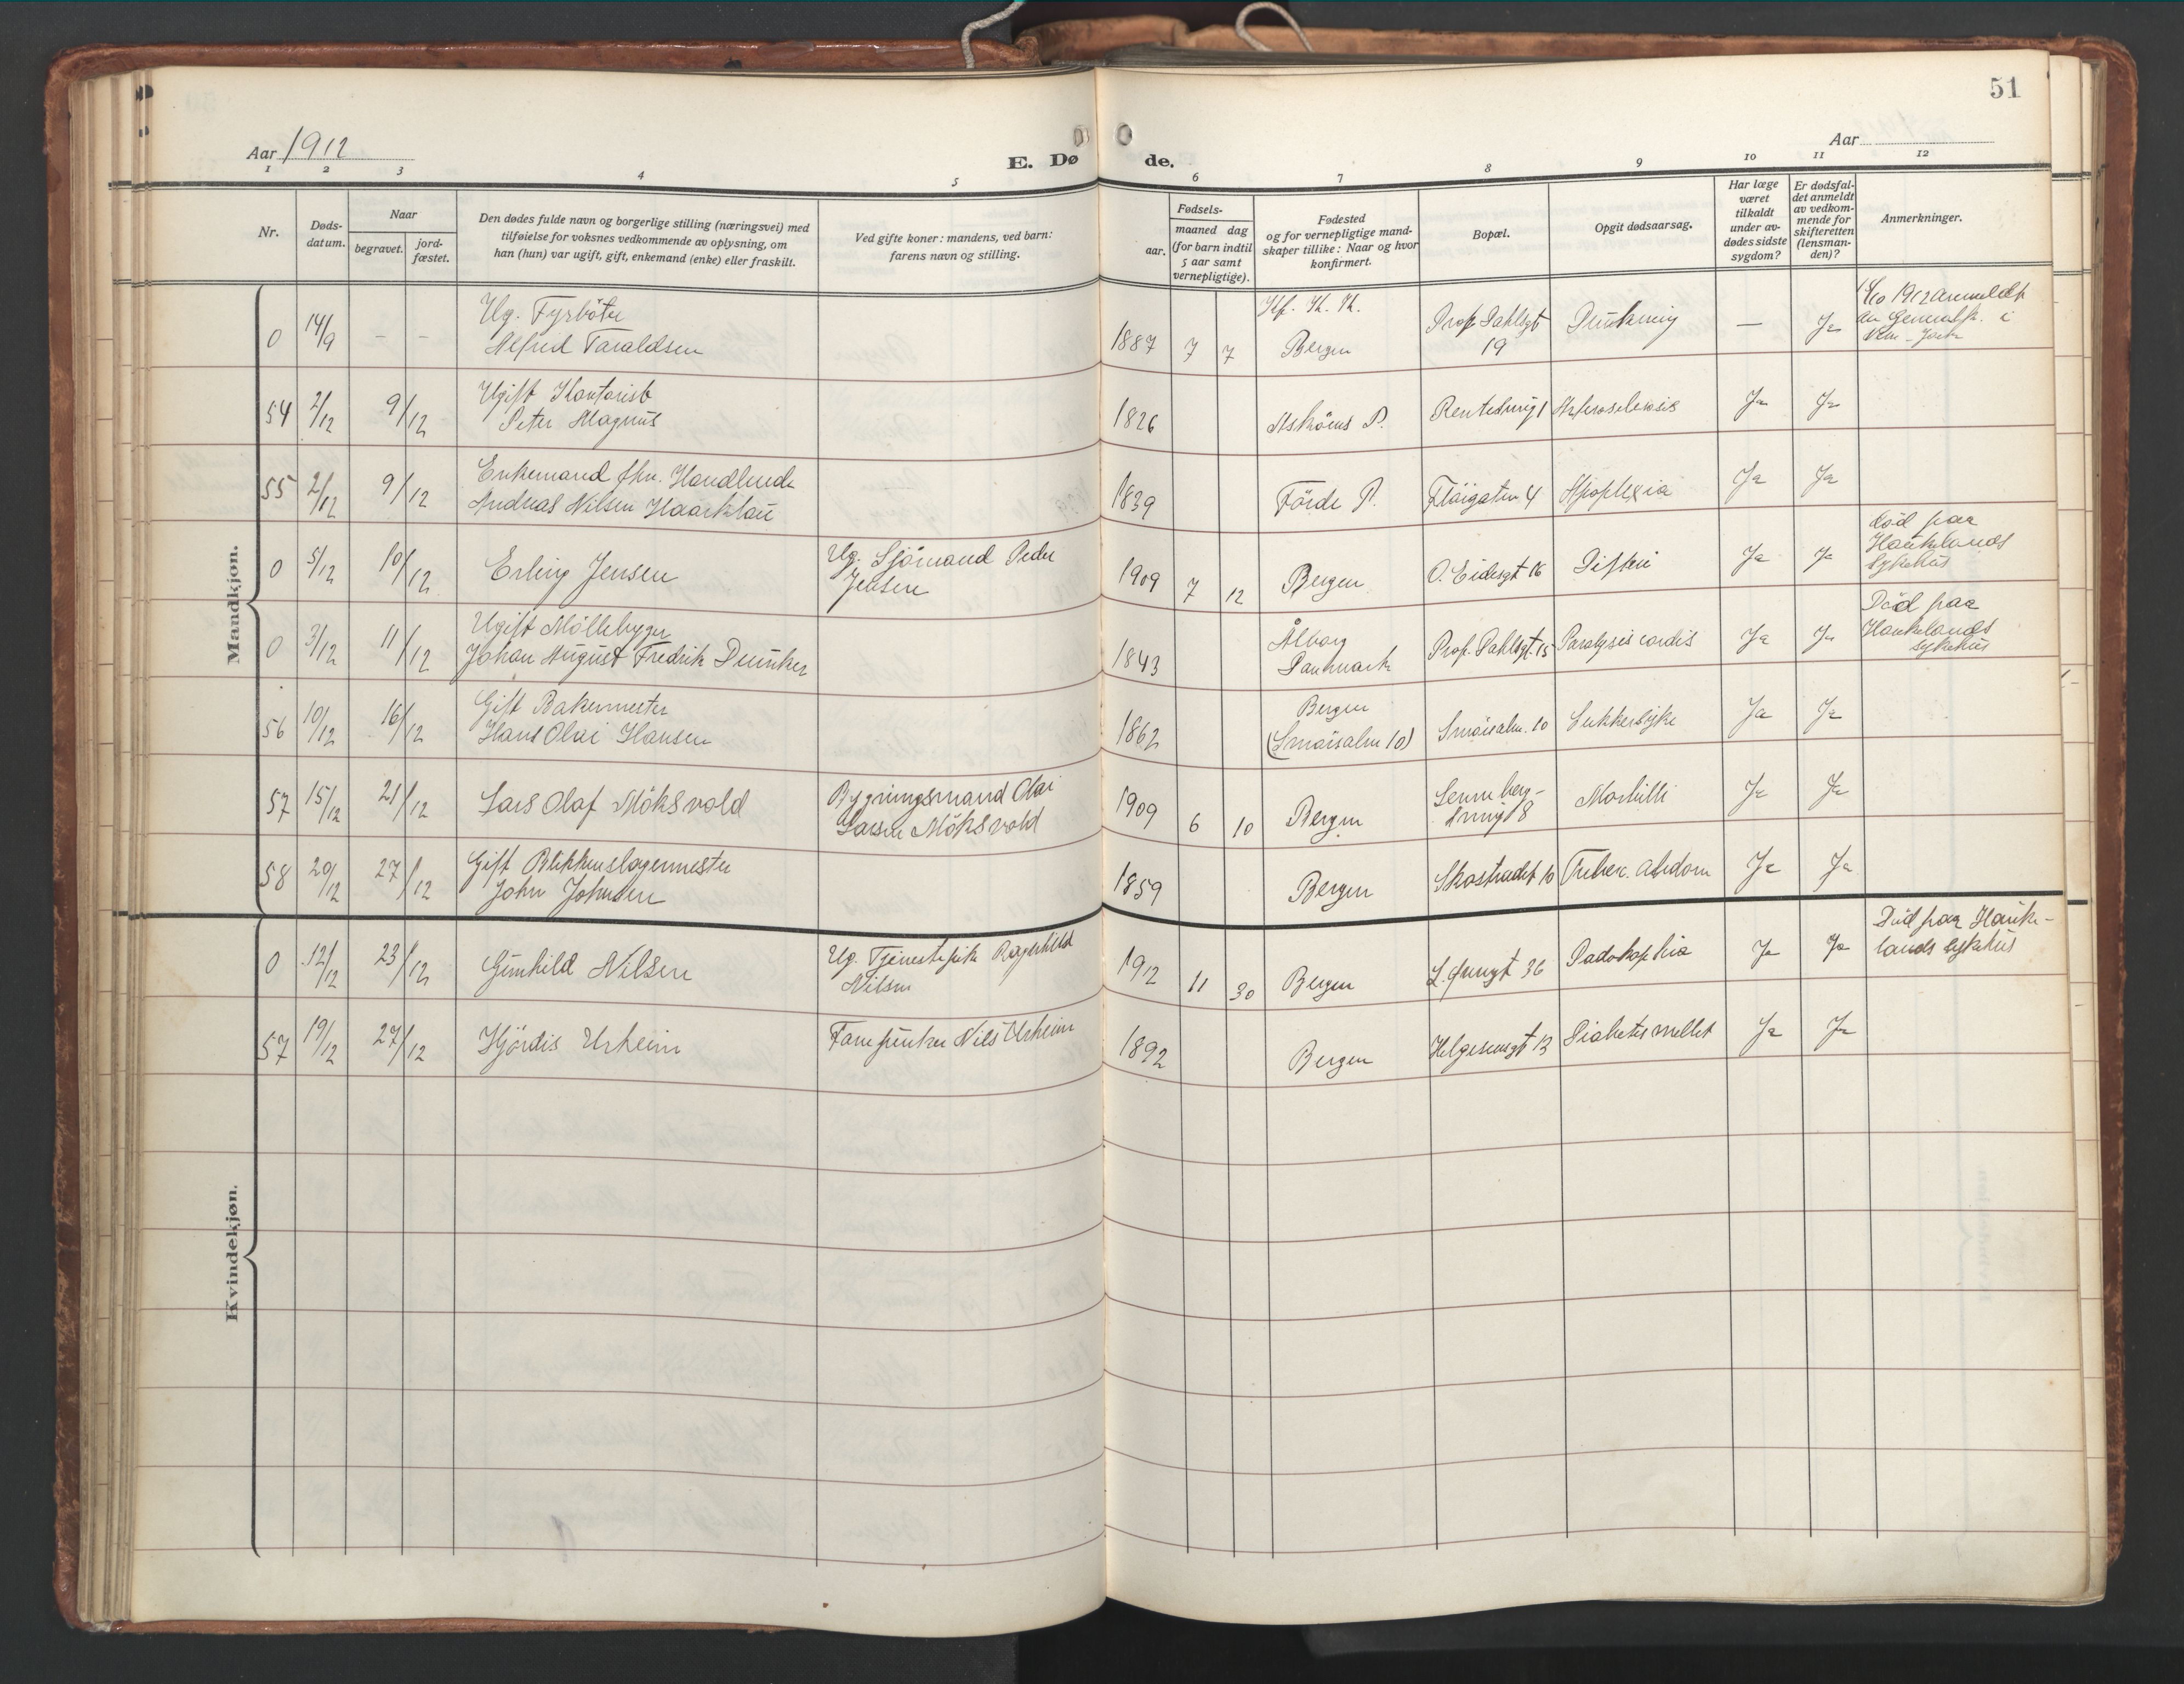 51
Aar 1912
E. Dø de.
Aar
1 2 3 4 5 6 7 8 9 10 11 12
Nr.
Døds-
datum.
Naar
begravet.
jord-
fæstet.
Den dødes fulde navn og borgerlige stilling (næringsvei) med
tilføielse for voksnes vedkommende av oplysning, om
han (hun) var ugift, gift, enkemand (enke) eller fraskilt.
Ved gifte koner: mandens, ved barn:
farens navn og stilling.
Fødsels-
aar.
maaned dag
(for barn indtil
5 aar samt
vernepligtige).
Fødested
og for vernepligtige mand-
skaper tillike: Naar og hvor
konfirmert.
Bopæl.
Opgit dødsaarsag.
Har læge
været
tilkaldt
under av-
dødes sidste
sygdom?
Er dødsfal-
det anmeldt
av vedkom-
mende for
skifteretten
(lensman-
den)?
Anmerkninger.
Mandkjøn.
0 14/9 - -
Ug. Fyrböter
Alfred Taraldsen
1887 7 7
Bergen
Prof. Dahlsgt
19
Drukning
—
Ja
1912 anmeldt
av Generalk. i
New-York
54 2/12 9/12
Ugift Kontorist
Peter Magnus
1826
Asköens P.
Ja Ja
55 2/12 9/12
Enkemand fhv. Handlende
Andreas Nilsen Haarklau
1839
Förde P.
Flöigaten 4
Apoplexia
Ja Ja
0 5/12 10/12
Erling Jensen
Ug. Sjömand Peder
Jensen
1909 7 12
Bergen
O. Eidesgt 16
Difteri
Ja Ja
död paa
Haukelands
Sykehus
0 3/12 11/12
Ugift Möllebygger
Johan August Fredrik Dunker
1843
Ålborg
Danmark
Prof. Dahlsgt. 15
Paralysis cordis
Ja Ja
Död paa
Haukelands
sykehus
56 10/12 16/12
Gift Bakermester
Hans Olai Hansen
1862
Bergen
(Smörsalm 10)
Smörsalm. 10
Sukkersyke
Ja Ja
57 15/12 21/12
Lars Olaf Möksvold
Bygningsmand Olai
Larsen Möksvold
1909 6 10
Bergen
Morbilli
Ja Ja
58 20/12 27/12
Gift Blikkenslagermester
John Johnsen
1859
Bergen
Skostrædet 10
Tuberc. abdom
Ja Ja
Kvindekjøn.
0 12/12 23/12
Gunhild Nilsen
Ug. Tjenestepike Ragnhild
Nilsen
1912 11 30
Bergen
L. gt 36
Ja Ja
Död paa Hauke-
lands sykehus
57 19/12 27/12
Hjördis Urheim
Nils Urheim
1892
Bergen
Helgesensgt 13
Diabetes mellit
Ja Ja